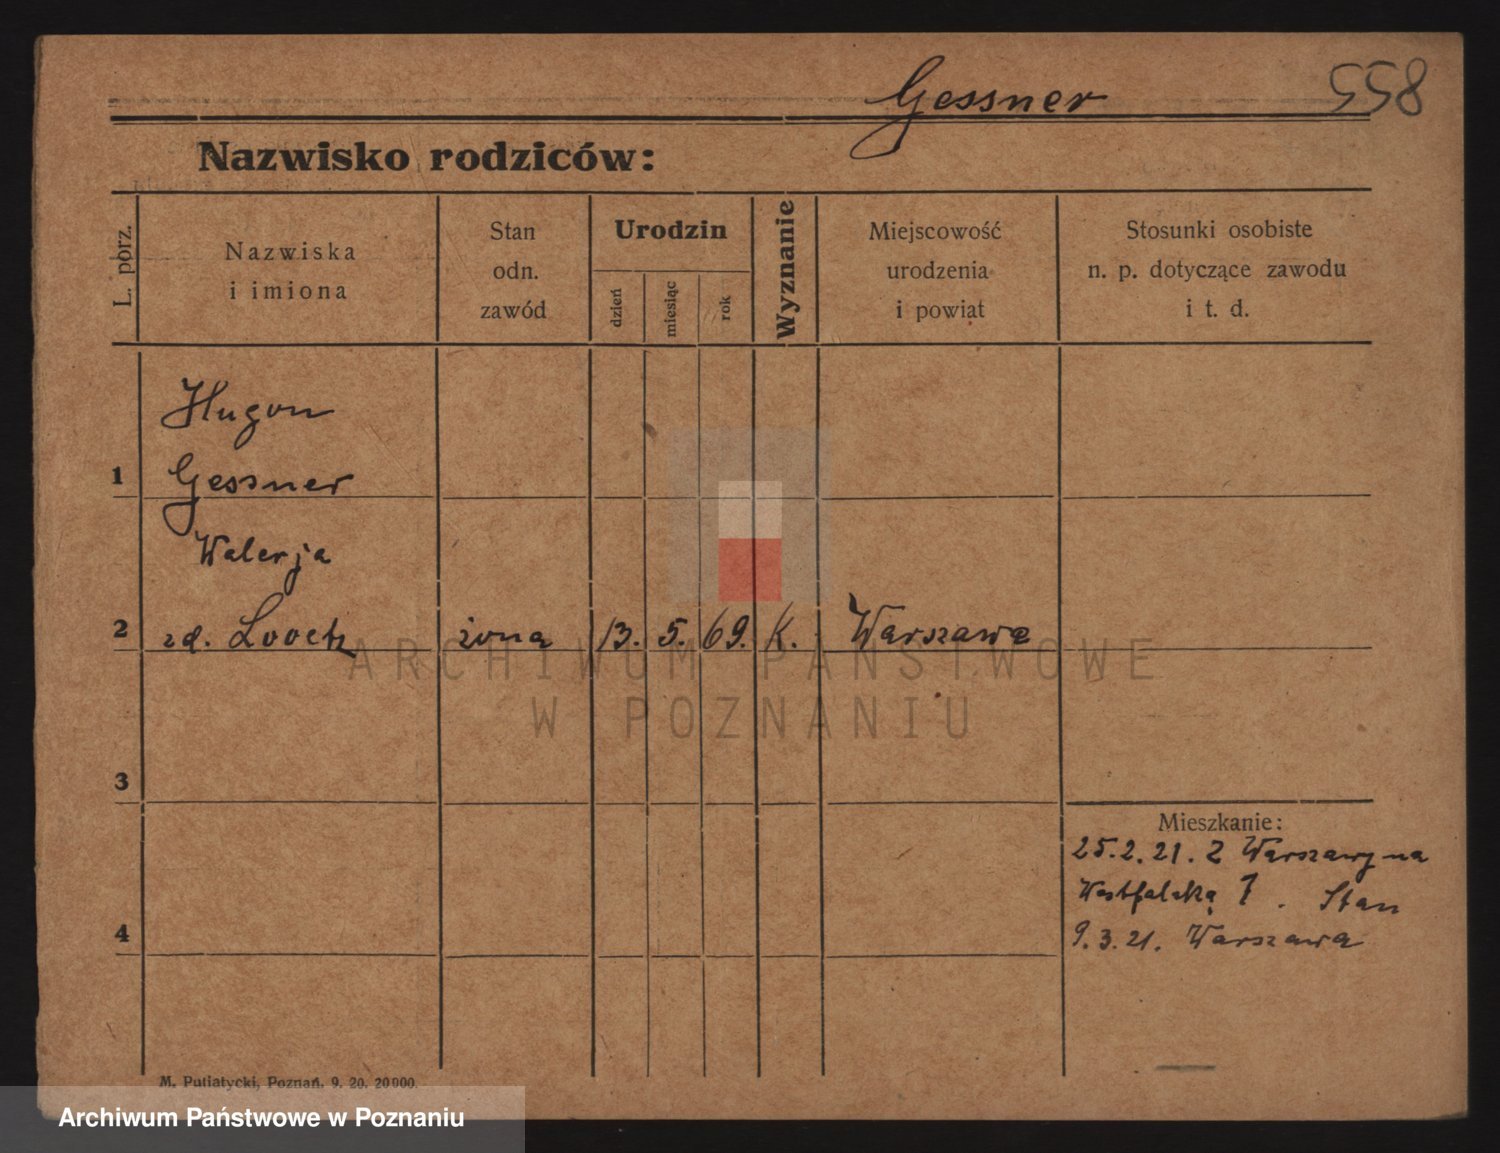 Gessner
558
Nazwisko rodziców:
L. porz.
Nazwiska
i imiona
Stan
odn.
zawód
Urodzin
dzień
miesiąc
rok
Wyznanie
Miejscowość
urodzenia
i powiat
Stosunki osobiste
n. p. dotyczące zawodu
i t. d.
Hugon
1 Gessner
Walerja
2 zd. żona 13. 5. 69. K. Warszawa
3
Mieszkanie:
25.2.21. Z Warszawy na
4
9.3.21. Warszawa
M. Putiatycki, Poznań. 9. 20. 20000.
ARCHIWUM PAŃSTWOWE
W POZNANIU
Archiwum Państwowe w Poznaniu